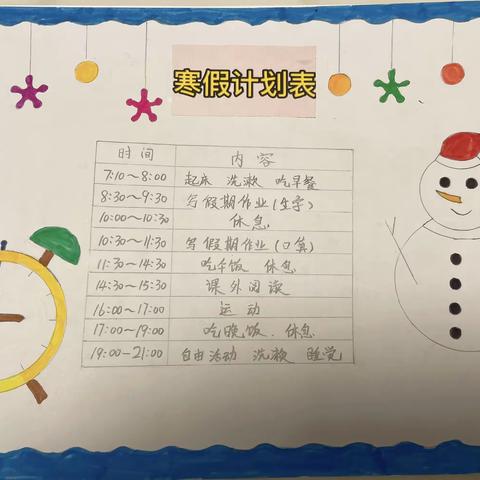 寒假计划表
时间 内容
7:10~8:00 起床 洗漱 吃早餐
8:30~9:30 写假期作业(生字)
10:00~10:30 休息
10:30~11:30 写假期作业(口算)
11:30~14:30 吃午饭 休息
14:30~15:30 课外阅读
16:00~17:00 运动
17:00~19:00 吃晚饭、休息
19:00-21:00 自由活动 洗漱 睡觉